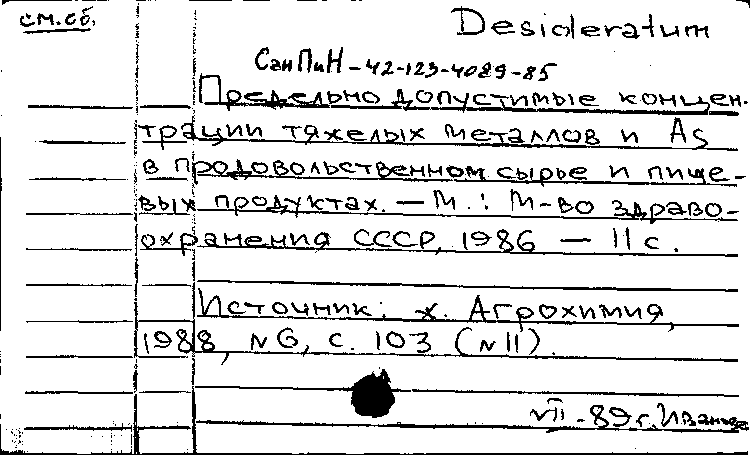 см. сб.
Desideratum
СанПиН-42-123-4089-85
Предельно допустимые концен-
трации тяжелых металлов и As
в продовольственном сырье и пище-
вых продуктах. — М.: М-во здраво-
охранения СССР, 1986 — 11 с.
Источник: ж. Агрохимия,
1988, N6, с. 103 (N11).
VII - 89 г. Иванова